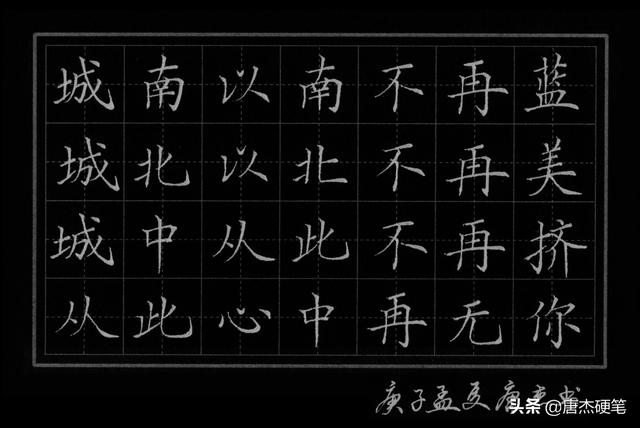 城南以南不再蓝
城北以北不再美
城中从此不再挤
从此心中再无你
庚子孟夏唐杰书
头条@唐杰硬笔